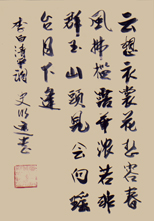 云想衣裳花想容春
风拂槛露华浓若非
群玉山头见会向瑶
台月下逢
李白清平调